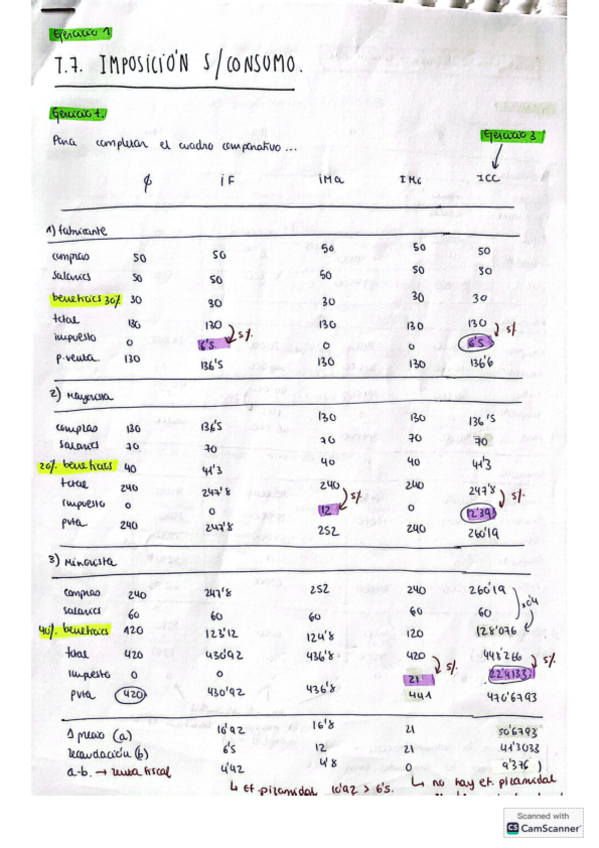 Ejercicio 1
T.7. IMPOSICIÓN S/CONSUMO.
Ejercicio 1.
Para completar el cuadro comparativo ...
Ejercicio 3
∅ iF iMa IMi ICC
1) fabricante
compras 50 50 50 50 50
salarios 50 50 50 50 50
beneficios 30% 30 30 30 30 30
total 130 130 130 130 130
5% 5%
impuesto 0 6'5 0 0 6'5
p.venta 130 136'5 130 130 136'6
2) Mayorista
compras 130 136'5 130 130 136'5
salarios 70 70 70 70 70
20% beneficios 40 41'3 40 40 41'3
total 240 247'8 240 240 247'8
5% 5%
impuesto 0 0 12 0 12'39
pvta 240 247'8 252 240 260'19
3) Minorista
compras 240 247'8 252 240 260'19
salarios 60 60 60 60 60
40% beneficios 120 123'12 124'8 120 128'076
total 420 430'92 436'8 420 448'266
5% 5%
impuesto 0 0 21 22'4133
pvta 420 430'92 436'8 441 470'6793
Δ precio (a) 10'92 16'8 21 50'6793
recaudación (b) 6'5 12 21 41'3033
a-b. → renta fiscal 4'42 4'8 0 9'376
↳ ef. piramidal 10'92 > 6'5. ↳ no hay ef. piramidal
Scanned with
CS CamScanner